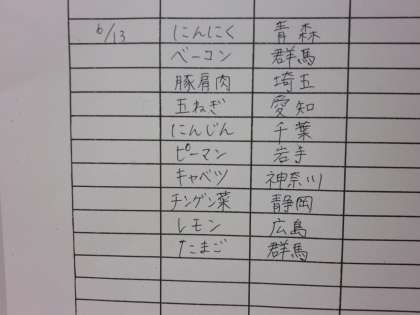 6/13 にんにく 青森
ベーコン 群馬
豚肩肉 埼玉
玉ねぎ 愛知
にんじん 千葉
ピーマン 岩手
キャベツ 神奈川
チンゲン菜 静岡
レモン 広島
たまご 群馬